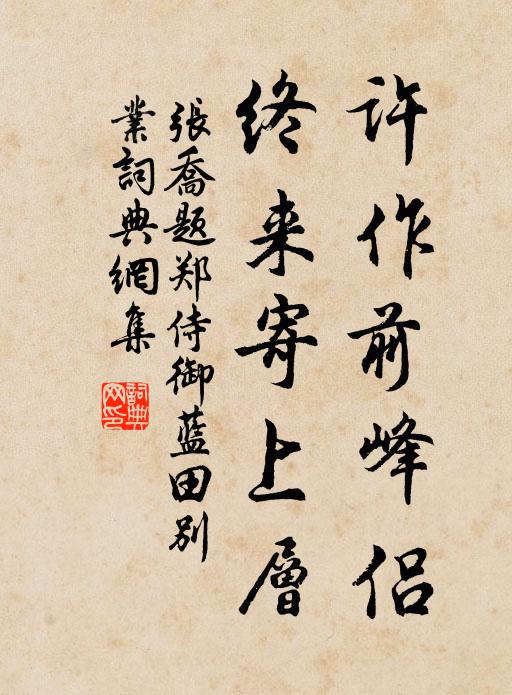 许作前峰侣
终来寄上層
張喬題郑侍御藍田别
業詞典網集
詞典网印